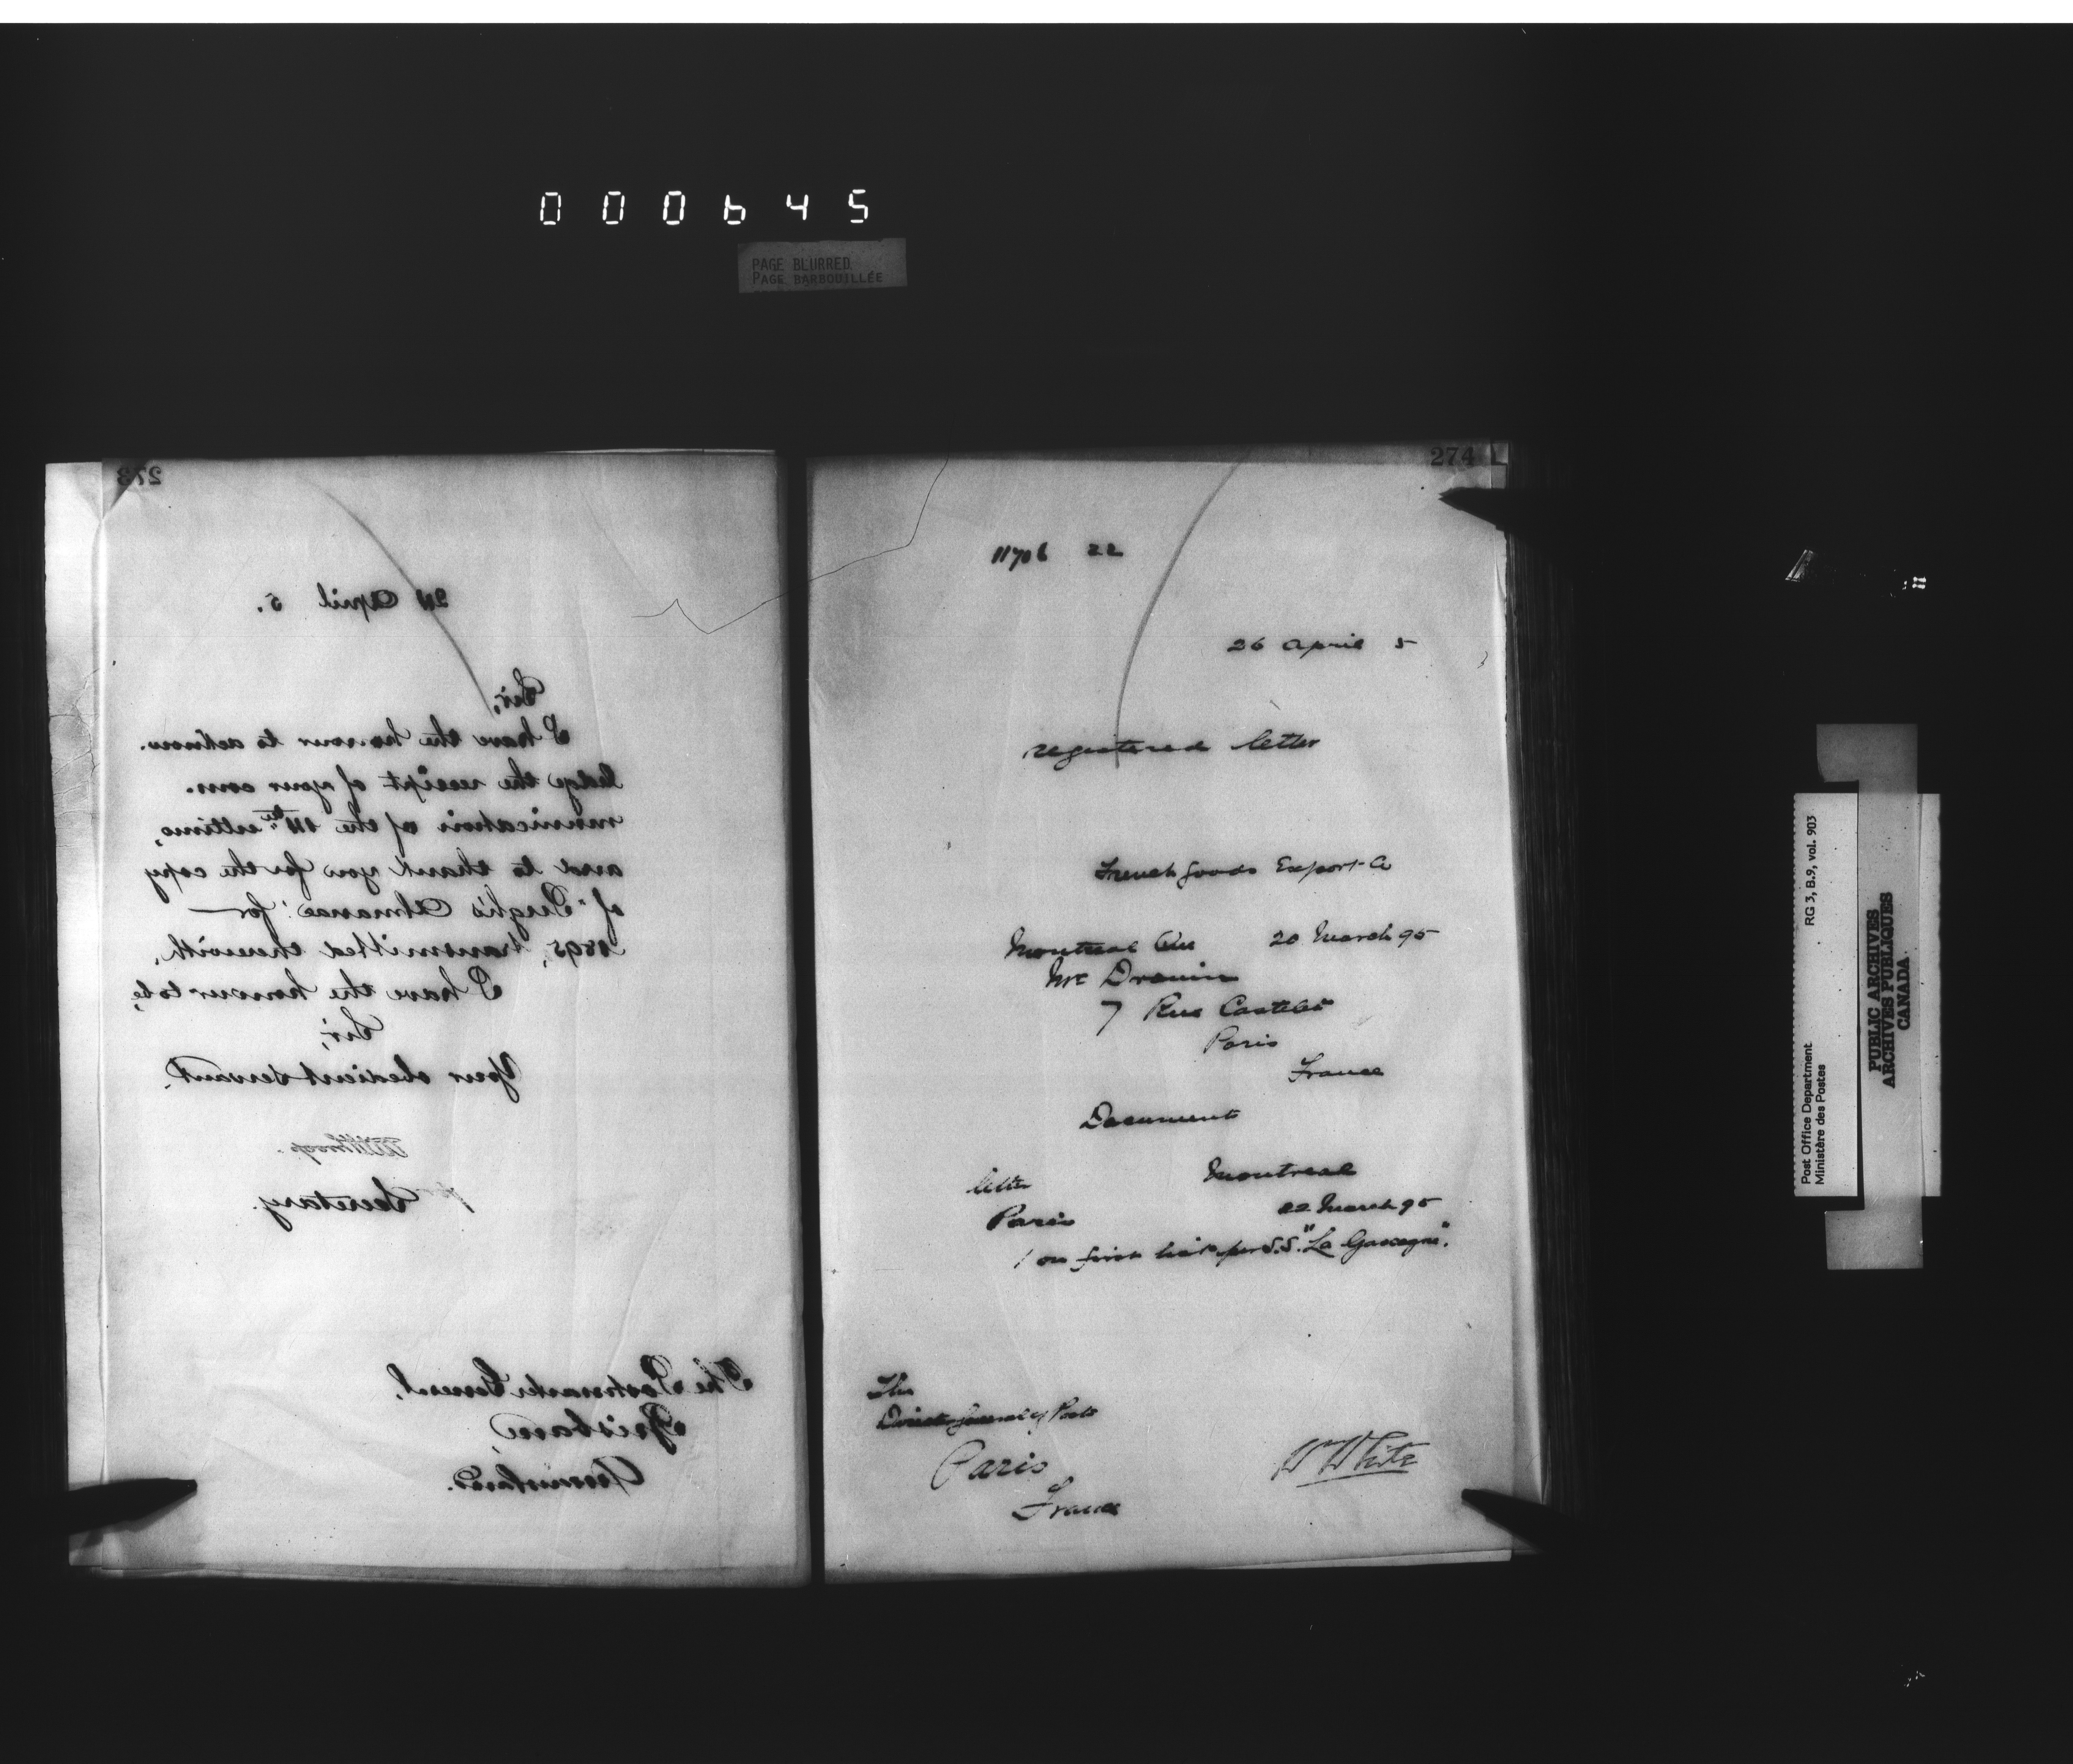 000645
PAGE BLURRED
PAGE BARBOUILLÉE
273
24 April 5.
Sir,
I have the honour to acknow-
ledge the receipt of your com-
munication of the 14th ultimo,
and to thank you for the copy
of "Pugh's Almanac" for
1895, transmitted therewith.
I have the honour to be,
Sir,
Your obedient servant.
for
Secretary.
The Postmaster General,
Brisbane,
Queensland.
274
11706 22
26 April 5
registered letter
French Goods Export Co
Montreal Que 20 March 95
Mr Drouin
7 Rue
Paris
France
Documents
letter Montreal
Paris 22 March 95
1 on first per S.S. "La Gascogne".
The
Director General of Posts
Paris
France
W White
Post Office Department
Ministère des Postes
RG 3, B.9, vol. 903
PUBLIC ARCHIVES
ARCHIVES PUBLIQUES
CANADA